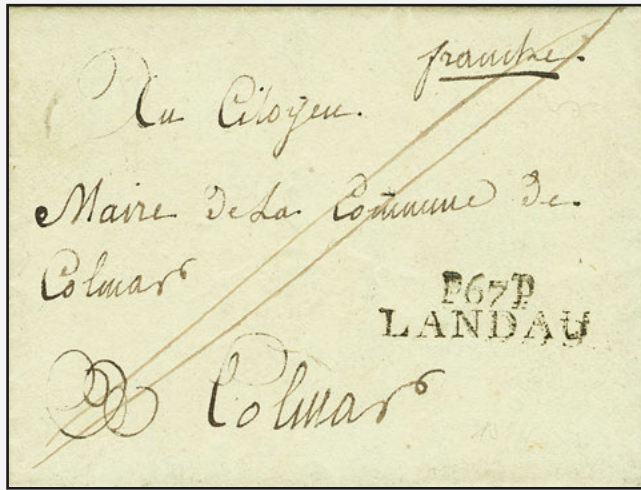 franche.
Au Citoyen.
Maire de La Commune de
Colmar
P67P
LANDAU
Colmar